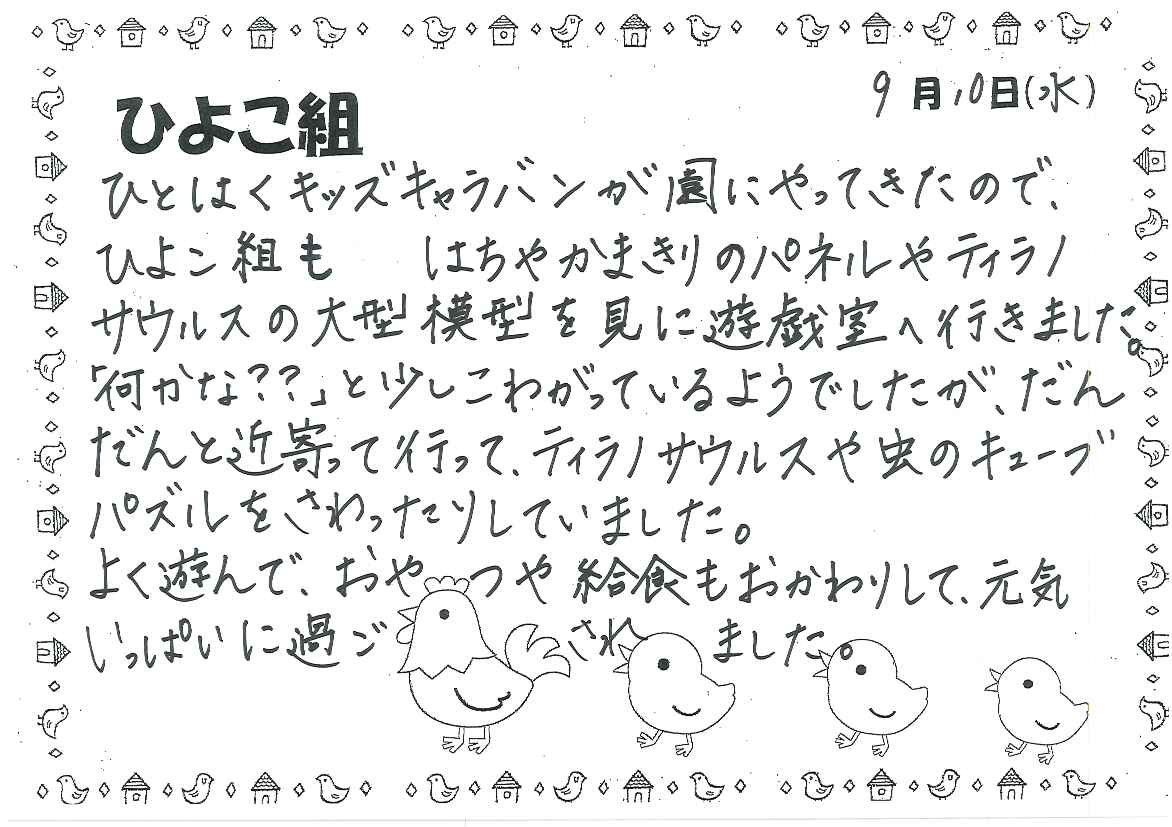 9月10日(水)
ひよこ組
ひとはくキッズキャラバンが園にやってきたので、
ひよこ組も はちやかまきりのパネルやティラノ
サウルスの大型模型を見に遊戯室へ行きました。
「何かな??」と少しこわがっているようでしたが、だん
だんと近寄って行って、ティラノサウルスや虫のキューブ
パズルをさわったりしていました。
よく遊んで、おやつや給食もおかわりして、元気
いっぱいに過ごされました。